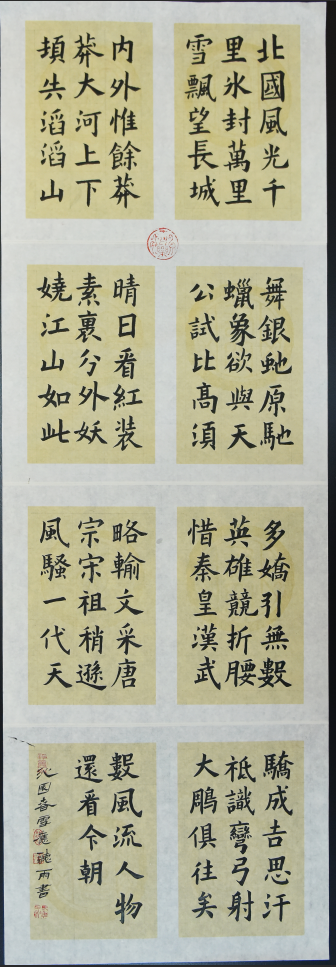 北國風光千
里冰封萬里
雪飄望長城
內外惟餘莽
莽大河上下
頓失滔滔山
舞銀虵原馳
蠟象欲與天
公試比髙須
晴日看紅装
素裹分外妖
嬈江山如此
多嬌引無數
英雄競折腰
惜秦皇漢武
略輸文采唐
宗宋祖稍遜
風騷一代天
驕成吉思汗
祗識彎弓射
大鵰俱往矣
數風流人物
還看今朝
沁园春雪 聽雨書